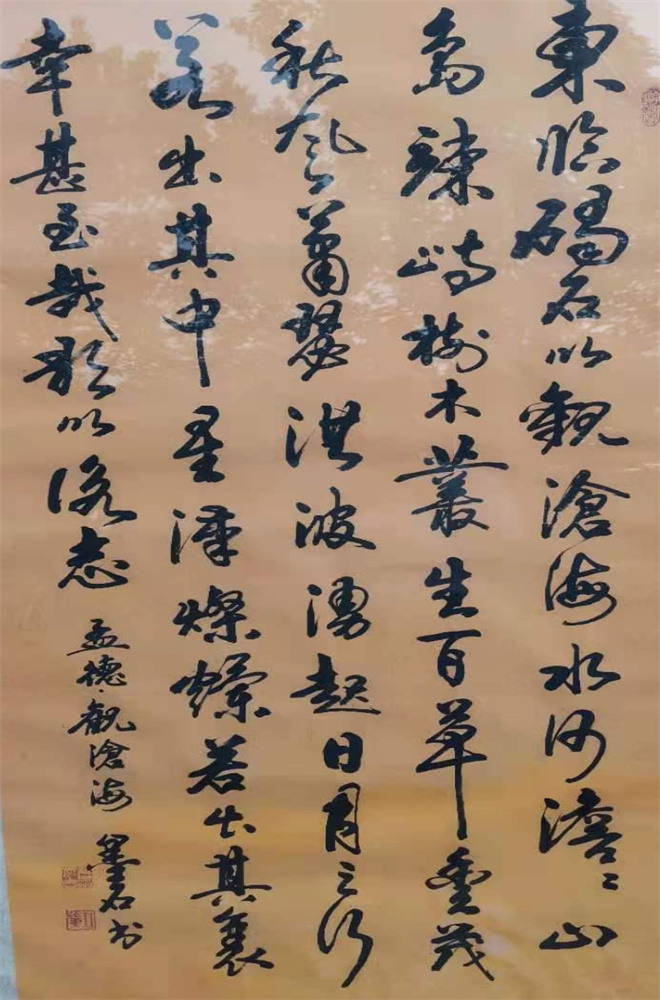 東臨碣石以觀滄海水何澹〻山
島竦峙樹木叢生百草豐茂
秋風蕭瑟洪波湧起日月之行
若出其中星漢燦爛若出其裏
幸甚至哉歌以詠志
孟德·觀滄海
墨石书